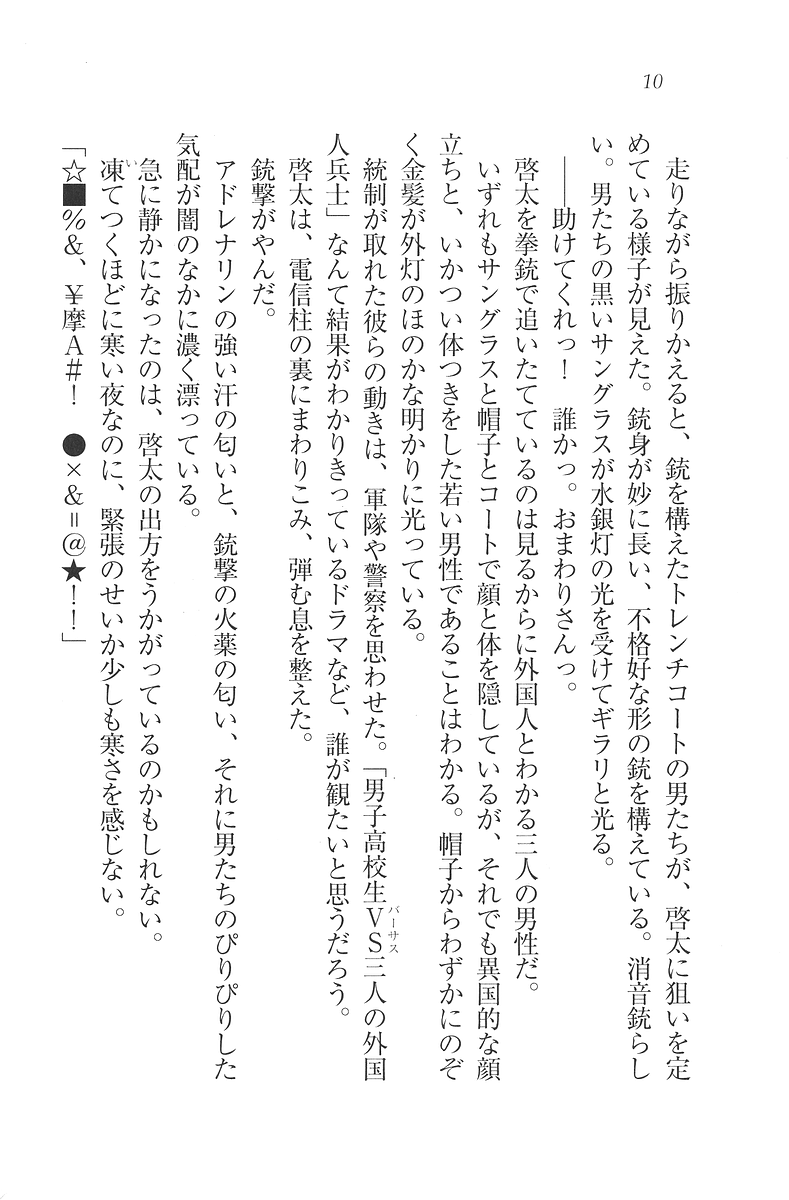 10
走りながら振りかえると、銃を構えたトレンチコートの男たちが、啓太に狙いを定
めている様子が見えた。銃身が妙に長い、不格好な形の銃を構えている。消音銃らし
い。男たちの黒いサングラスが水銀灯の光を受けてギラリと光る。
――助けてくれっ！　誰かっ。おまわりさんっ。
啓太を拳銃で追いたてているのは見るからに外国人とわかる三人の男性だ。
いずれもサングラスと帽子とコートで顔と体を隠しているが、それでも異国的な顔
立ちと、いかつい体つきをした若い男性であることはわかる。帽子からわずかにのぞ
く金髪が外灯のほのかな明かりに光っている。
統制が取れた彼らの動きは、軍隊や警察を思わせた。「男子高校生ＶＳ三人の外国
バーサス
人兵士」なんて結果がわかりきっているドラマなど、誰が観たいと思うだろう。
啓太は、電信柱の裏にまわりこみ、弾む息を整えた。
銃撃がやんだ。
アドレナリンの強い汗の匂いと、銃撃の火薬の匂い、それに男たちのぴりぴりした
気配が闇のなかに濃く漂っている。
急に静かになったのは、啓太の出方をうかがっているのかもしれない。
凍てつくほどに寒い夜なのに、緊張のせいか少しも寒さを感じない。
い
「☆■％＆、￥摩Ａ＃！　●×＆＝＠★！！」